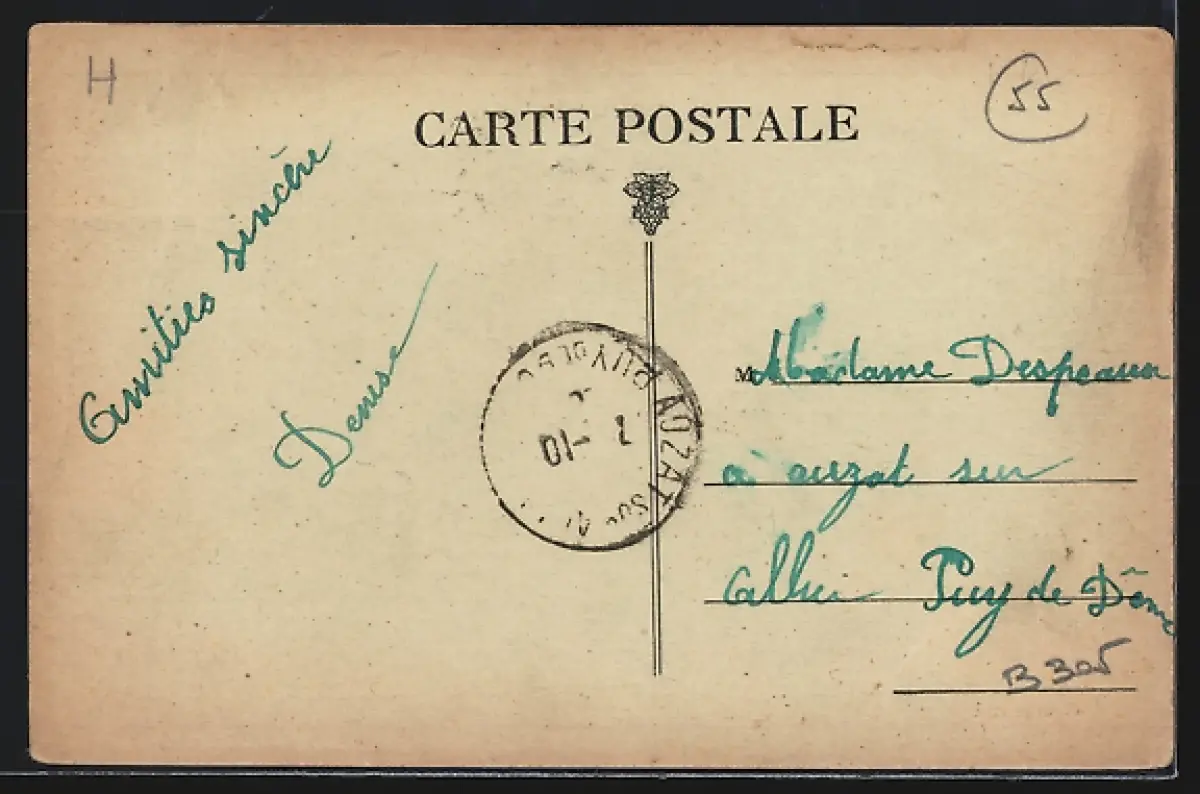 H
55
CARTE POSTALE
Amitiés sincère
Denise
AUZAT SUR
PUY DE
1 -10
M Madame Despeaux
à auzat sur
Allier Puy de Dôme
B 305